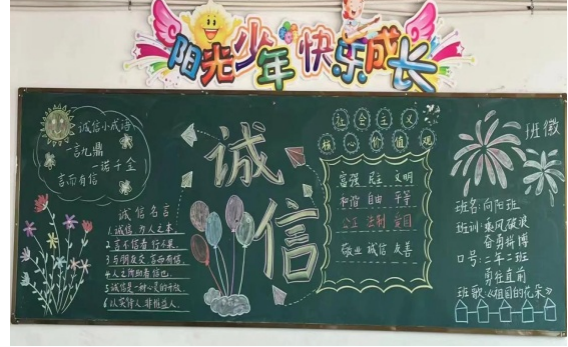 阳光少年快乐成长
诚信小成语
一言九鼎
一诺千金
言而有信
诚信名言
1.诚信为人之本.
2.言不信者行不果.
3.与朋友交言而有信.
4.人之所助者信也.
5.诚信是一种心灵的开放.
诚信
社会主义
核心价值观
富强 民主 文明
和谐 自由 平等
公正 法制 爱国
敬业 诚信 友善
班徽
班名:向阳班
班训:乘风破浪
奋勇拼博
口号:二年二班
勇往直前
班歌《祖国的花朵》